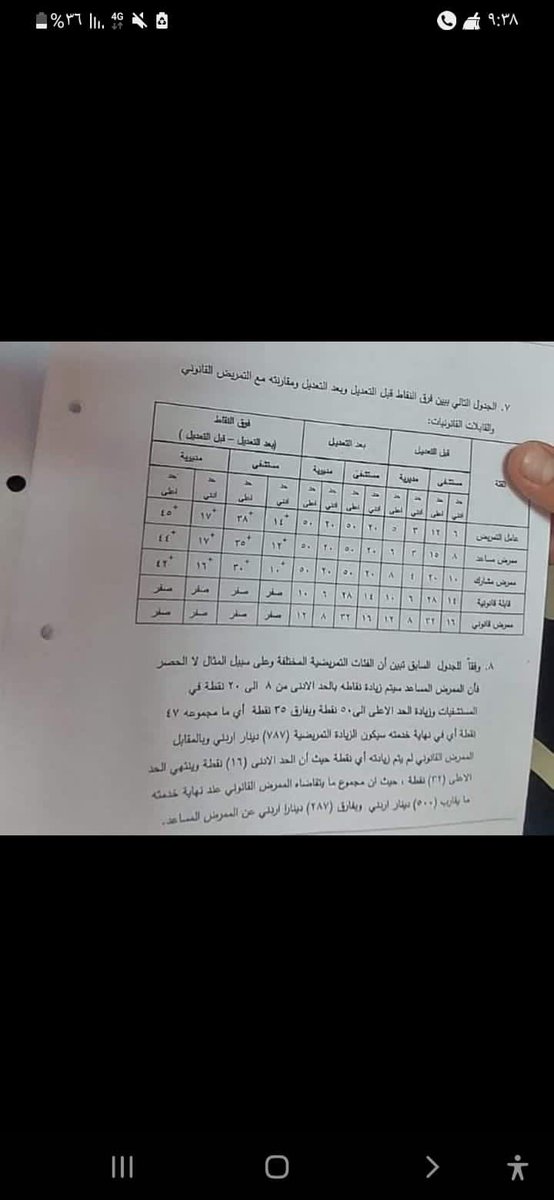 ٩:٣٨
4G
%٣٦
٧. الجدول التالي يبين فرق النقاط قبل التعديل وبعد التعديل ومقارنته مع التمريض القانوني
والقابلات القانونيات:
الفئة قبل التعديل بعد التعديل فرق النقاط
(بعد التعديل – قبل التعديل)
مستشفى مديرية مستشفى مديرية مستشفى مديرية
حد حد حد حد حد حد حد حد حد حد حد حد
ادنى اعلى ادنى اعلى ادنى اعلى ادنى اعلى ادنى اعلى ادنى اعلى
عامل التمريض ٦ ١٢ ٣ ٥ ٢٠ ٥٠ ٢٠ ٥٠ +١٤ +٣٨ +١٧ +٤٥
ممرض مساعد ٨ ١٥ ٣ ٦ ٢٠ ٥٠ ٢٠ ٥٠ +١٢ +٣٥ +١٧ +٤٤
ممرض مشارك ١٠ ٢٠ ٤ ٨ ٢٠ ٥٠ ٢٠ ٥٠ +١٠ +٣٠ +١٦ +٤٢
قابلة قانونية ١٤ ٢٨ ٦ ١٠ ١٤ ٢٨ ٦ ١٠ صفر صفر صفر صفر
ممرض قانوني ١٦ ٣٢ ٨ ١٢ ١٦ ٣٢ ٨ ١٢ صفر صفر صفر صفر
٨. وفقاً للجدول السابق تبين أن الفئات التمريضية المختلفة وعلى سبيل المثال لا الحصر
فأن الممرض المساعد سيتم زيادة نقاطه بالحد الادنى من ٨ الى ٢٠ نقطة في
المستشفيات وزيادة الحد الاعلى الى ٥٠ نقطة وبفارق ٣٥ نقطة أي ما مجموعه ٤٧
نقطة أي في نهاية خدمته سيكون الزيادة التمريضية (٧٨٧) دينار اردني وبالمقابل
الممرض القانوني لم يتم زيادته أي نقطة حيث أن الحد الادنى (١٦) نقطة وينتهي الحد
الاعلى (٣٢) نقطة ، حيث ان مجموع ما يتقاضاه الممرض القانوني عند نهاية خدمته
ما يقارب (٥٠٠) دينار اردني وبفارق (٢٨٧) دينارا اردني عن الممرض المساعد.